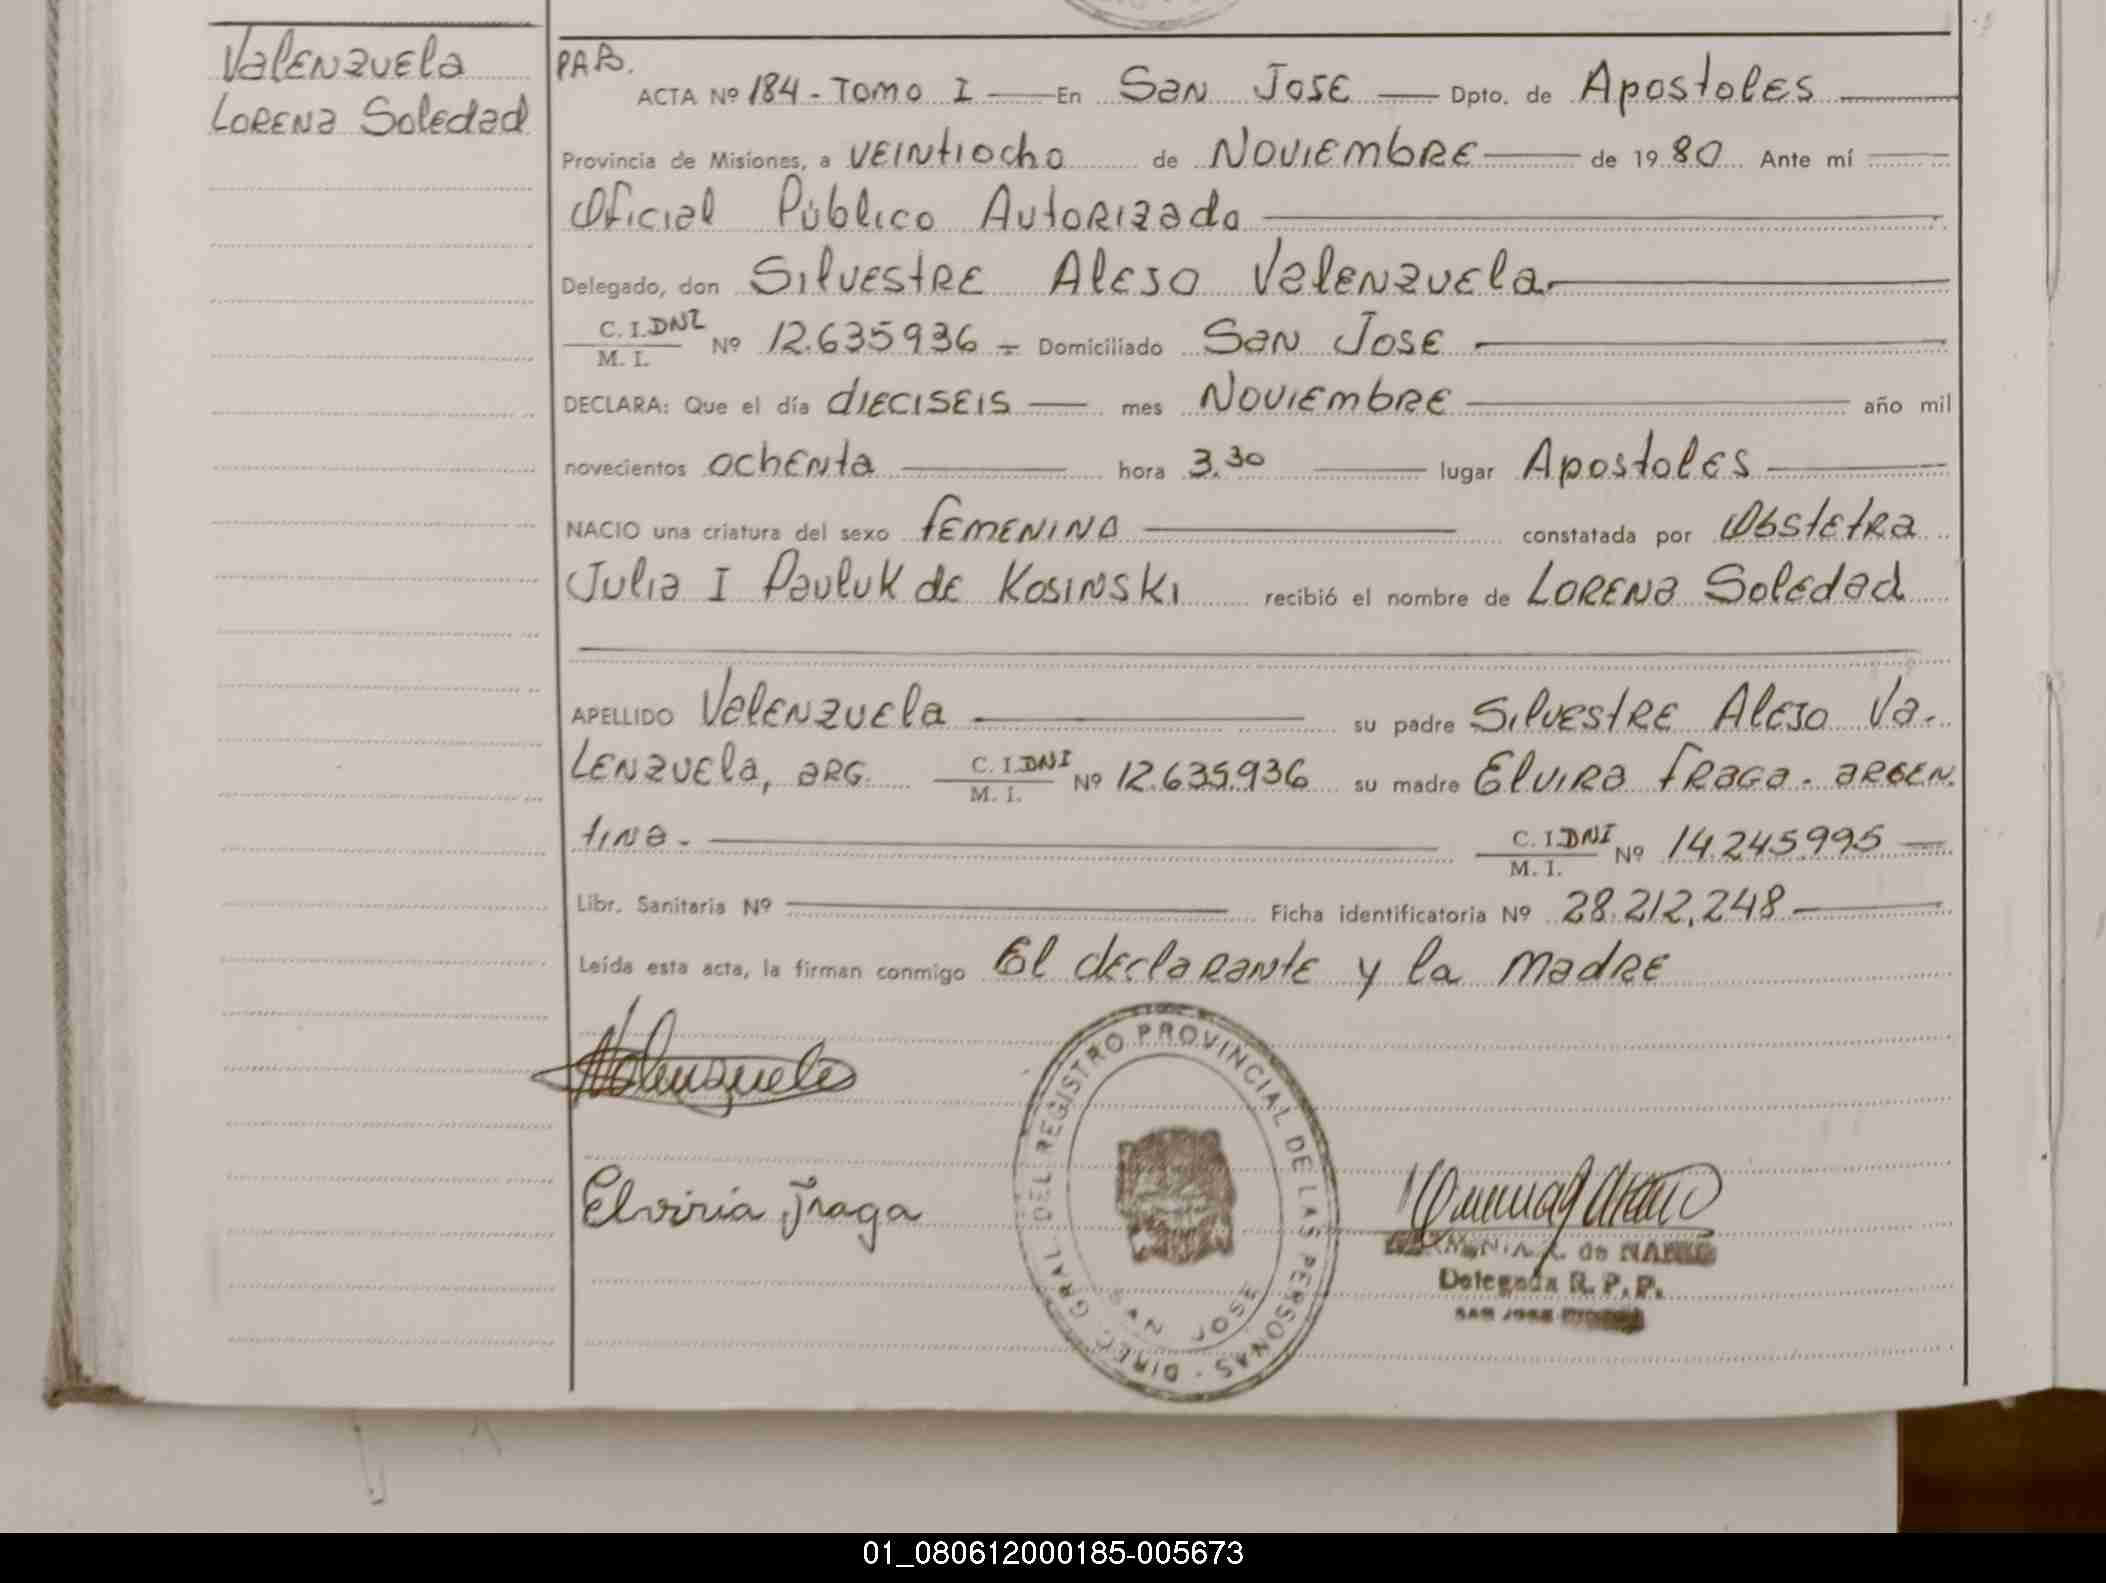 Valenzuela
Lorena Soledad
PAB.
ACTA Nº 184 - TOMO I En San Jose Dpto. de Apostoles
Provincia de Misiones, a veintiocho de Noviembre de 1980 Ante mí
Oficial Público Autorizado
Delegado, don Silvestre Alejo Valenzuela
C. I. DNI
M. I.
Nº 12.635936 - Domiciliado San Jose
DECLARA: Que el día dieciseis mes Noviembre año mil
novecientos ochenta hora 3.30 lugar Apostoles
NACIO una criatura del sexo femenino constatada por Obstetra
Julia I Pauluk de Kosinski recibió el nombre de Lorena Soledad
APELLIDO Valenzuela su padre Silvestre Alejo Va-
lenzuela, arg. C. I. DNI
M. I.
Nº 12.635.936 su madre Elvira Fraga - argen-
tina - C. I. DNI
M. I.
Nº 14.245.995
Libr. Sanitaria Nº Ficha identificatoria Nº 28.212.248
Leída esta acta, la firman conmigo El declarante y la madre
Valenzuela
Elviria Fraga
DIREC. GRAL. DEL REGISTRO PROVINCIAL DE LAS PERSONAS
SAN JOSE
de
Delegada R. P. P.
SAN JOSE
01_080612000185-005673